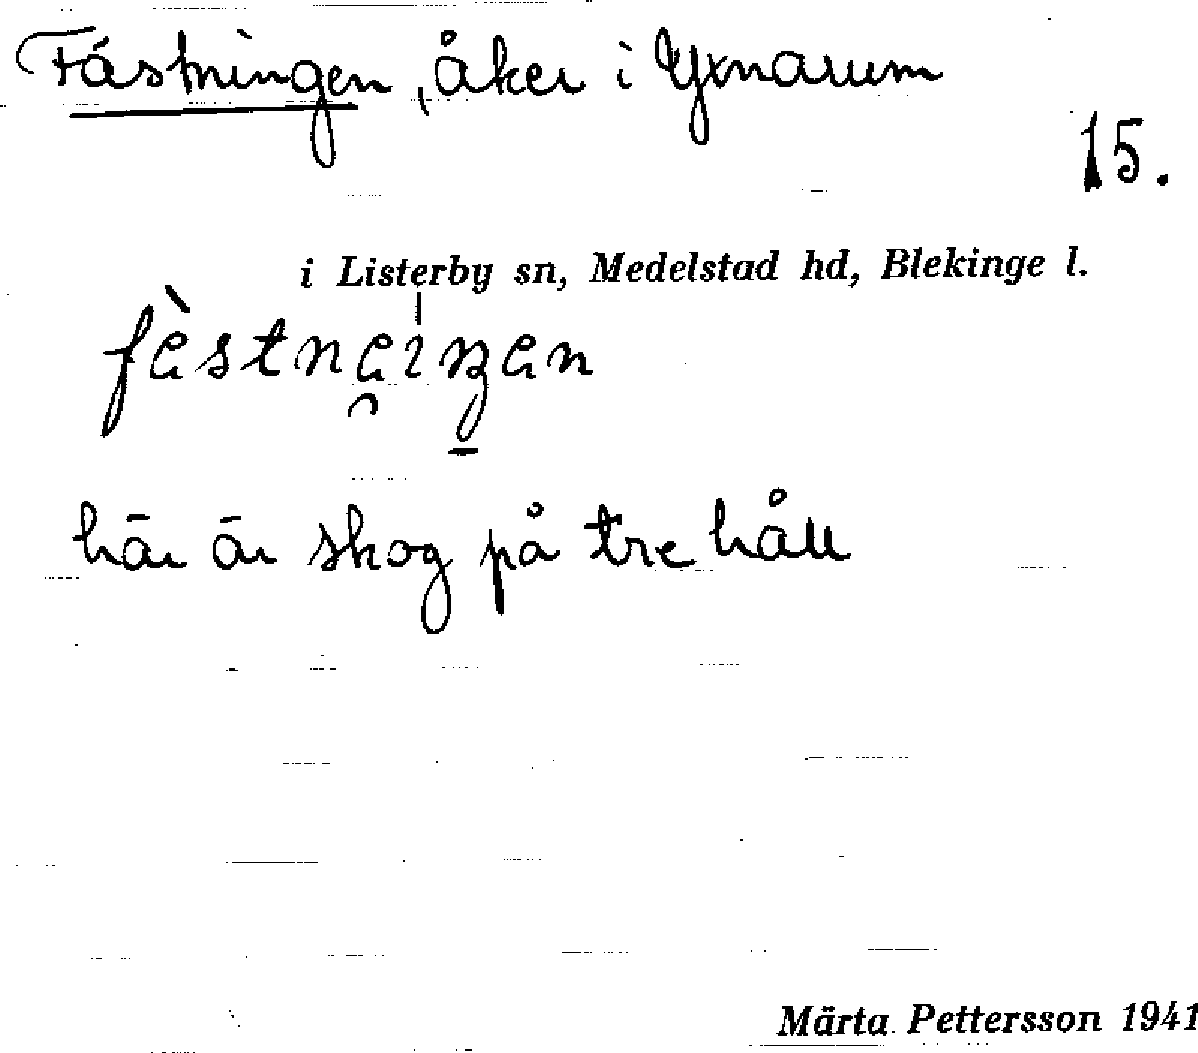 Fästningen, åker i Yxnarum
15.
i Listerby sn, Medelstad hd, Blekinge l.
här är skog på tre håll
Märta Pettersson 1941